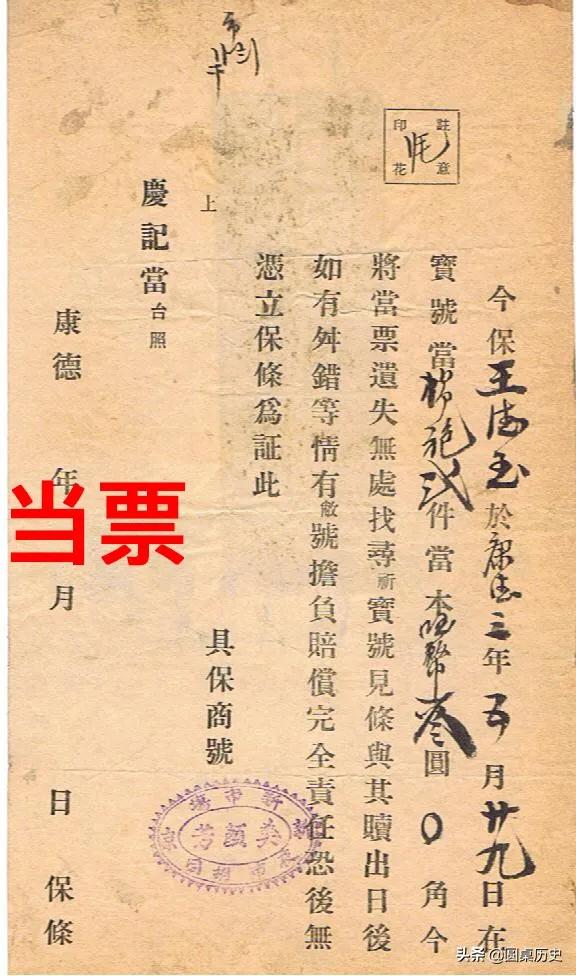 註意印花
今保王玉於康德三年五月廿九日在
寶號當棉袍貳件當本國幣叁圓0角今
將當票遺失無處找尋祈寶號見條與其贖出日後
如有舛錯等情有敝號擔負賠償完全責任恐後無
憑立保條爲証此
上
慶記當台照
具保商號
新市場
康德 年 月 日 保條
当票
头条 @圆桌历史